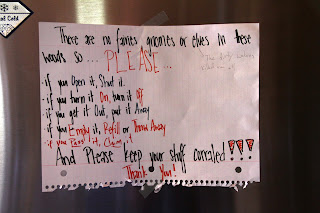 Cold
There are no fairies gnomies or elves in these
woods so... PLEASE...
- if you Open it, Shut it.
- if you turn it On, turn it off
- if you get it Out, put it Away
- if you Empty it, Refill or Throw Away
- if you Pass it,
And Please keep your stuff corraled!!!
Thank You!